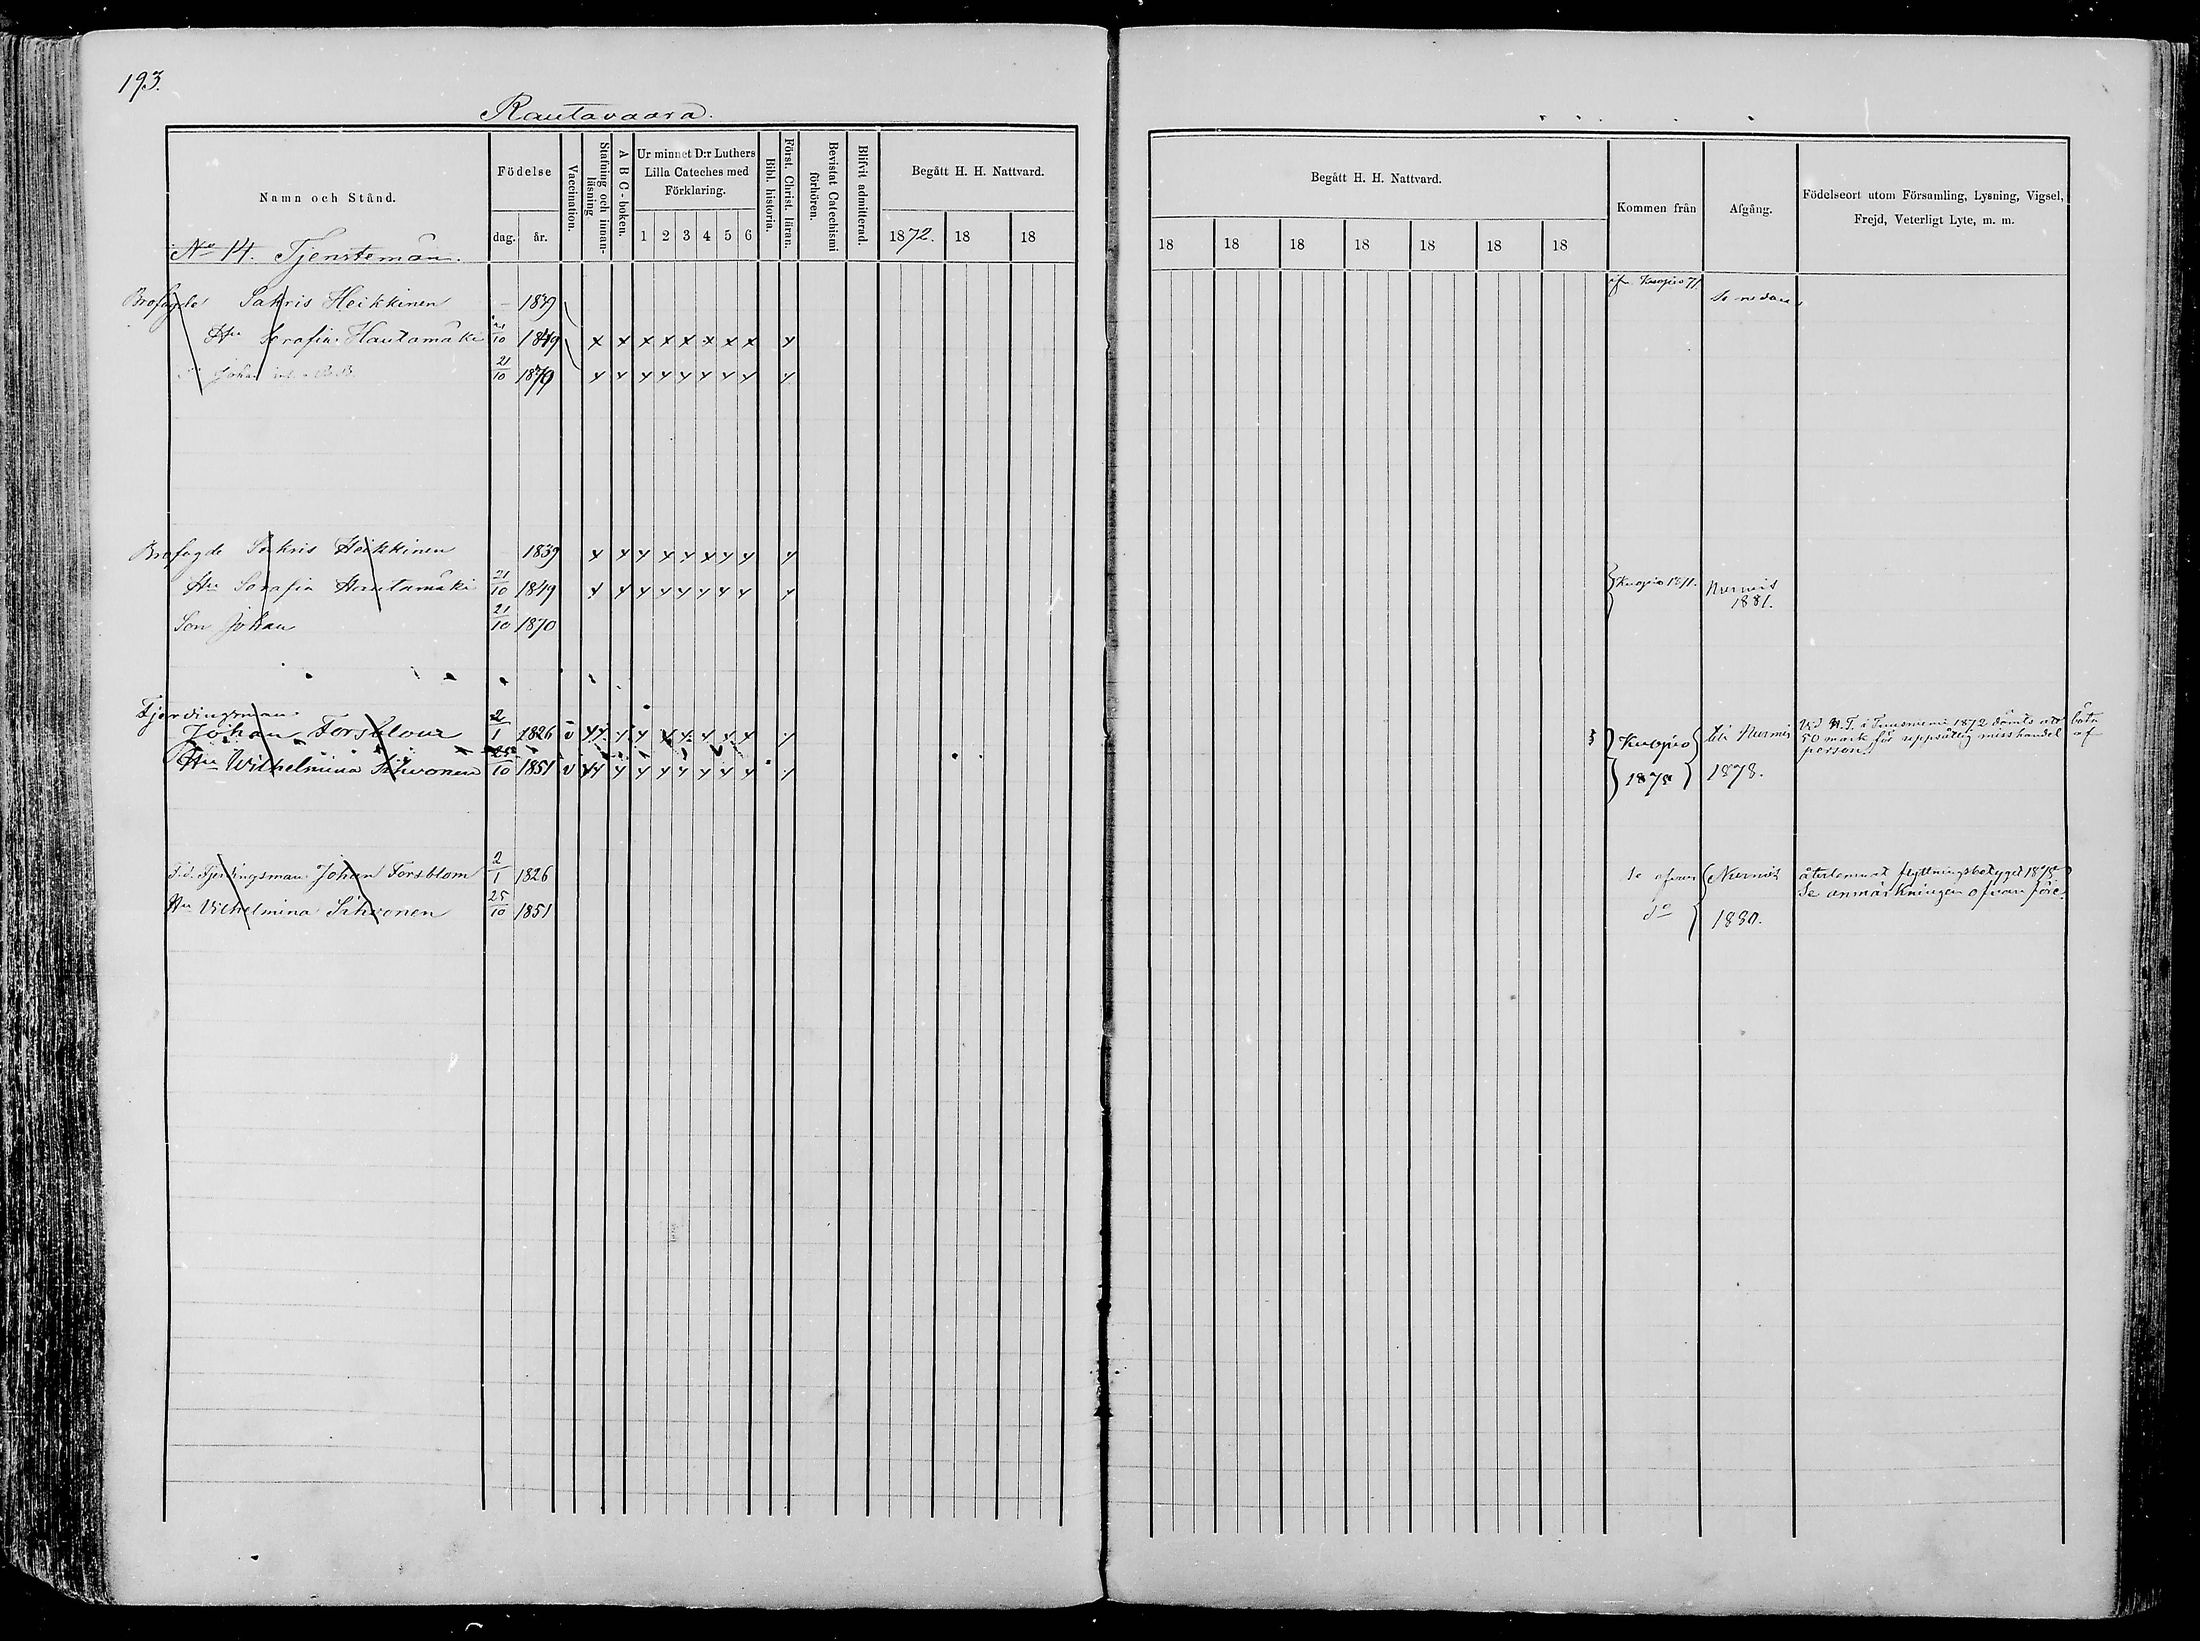 193.
Rautavaara.
Namn och Stånd.
Födelse
dag.
år.
Vaccination.
Stafning och innanläsning
A B C-boken.
Ur minnet D:r Luthers
Lilla Cateches med
Förklaring.
1 2 3 4 5 6
Bibl. historia.
Först. Christ. läran.
Bevistat Catechismi
förhören.
Blifvit admitterad.
Begått H. H. Nattvard.
1872. 18 18
Begått H. H. Nattvard.
18 18 18 18 18 18 18
Kommen från
Afgång.
Födelseort utom Församling, Lysning, Vigsel,
Frejd, Veterligt Lyte, m. m.
No 14. Tjenstemän.
Brofogde Sakris Heikkinen 1839 Kuopio 71. Se nedan
Hu Serafia Hautamäki 21/10 1849 x x x x x x x x x
Johan 21/10 1870
Brofogde Sakris Heikkinen 1839
Hu Serafia Hautamäki 21/10 1849 Kuopio 1871. Nurmis
1881.
Son Johan 21/10 1870
Fjerdingsman
Johan Forsblom 2/1 1826 v Kuopio till Nurmis Vid V.T. i Tuusniemi 1872 dömts att böta
50 mark för uppsåtlig misshandel af
person.
Hu Wilhelmina Sihvonen 25/10 1851 v 1875 1878.
F.d. Fjerdingsman Johan Forsblom 2/1 1826 se ofvan Nurmis återlemnat flyttningsbetyget 1878
Se anmärkningen ofvan före.
Hu Vilhelmina Sihvonen 25/10 1851 do 1880.